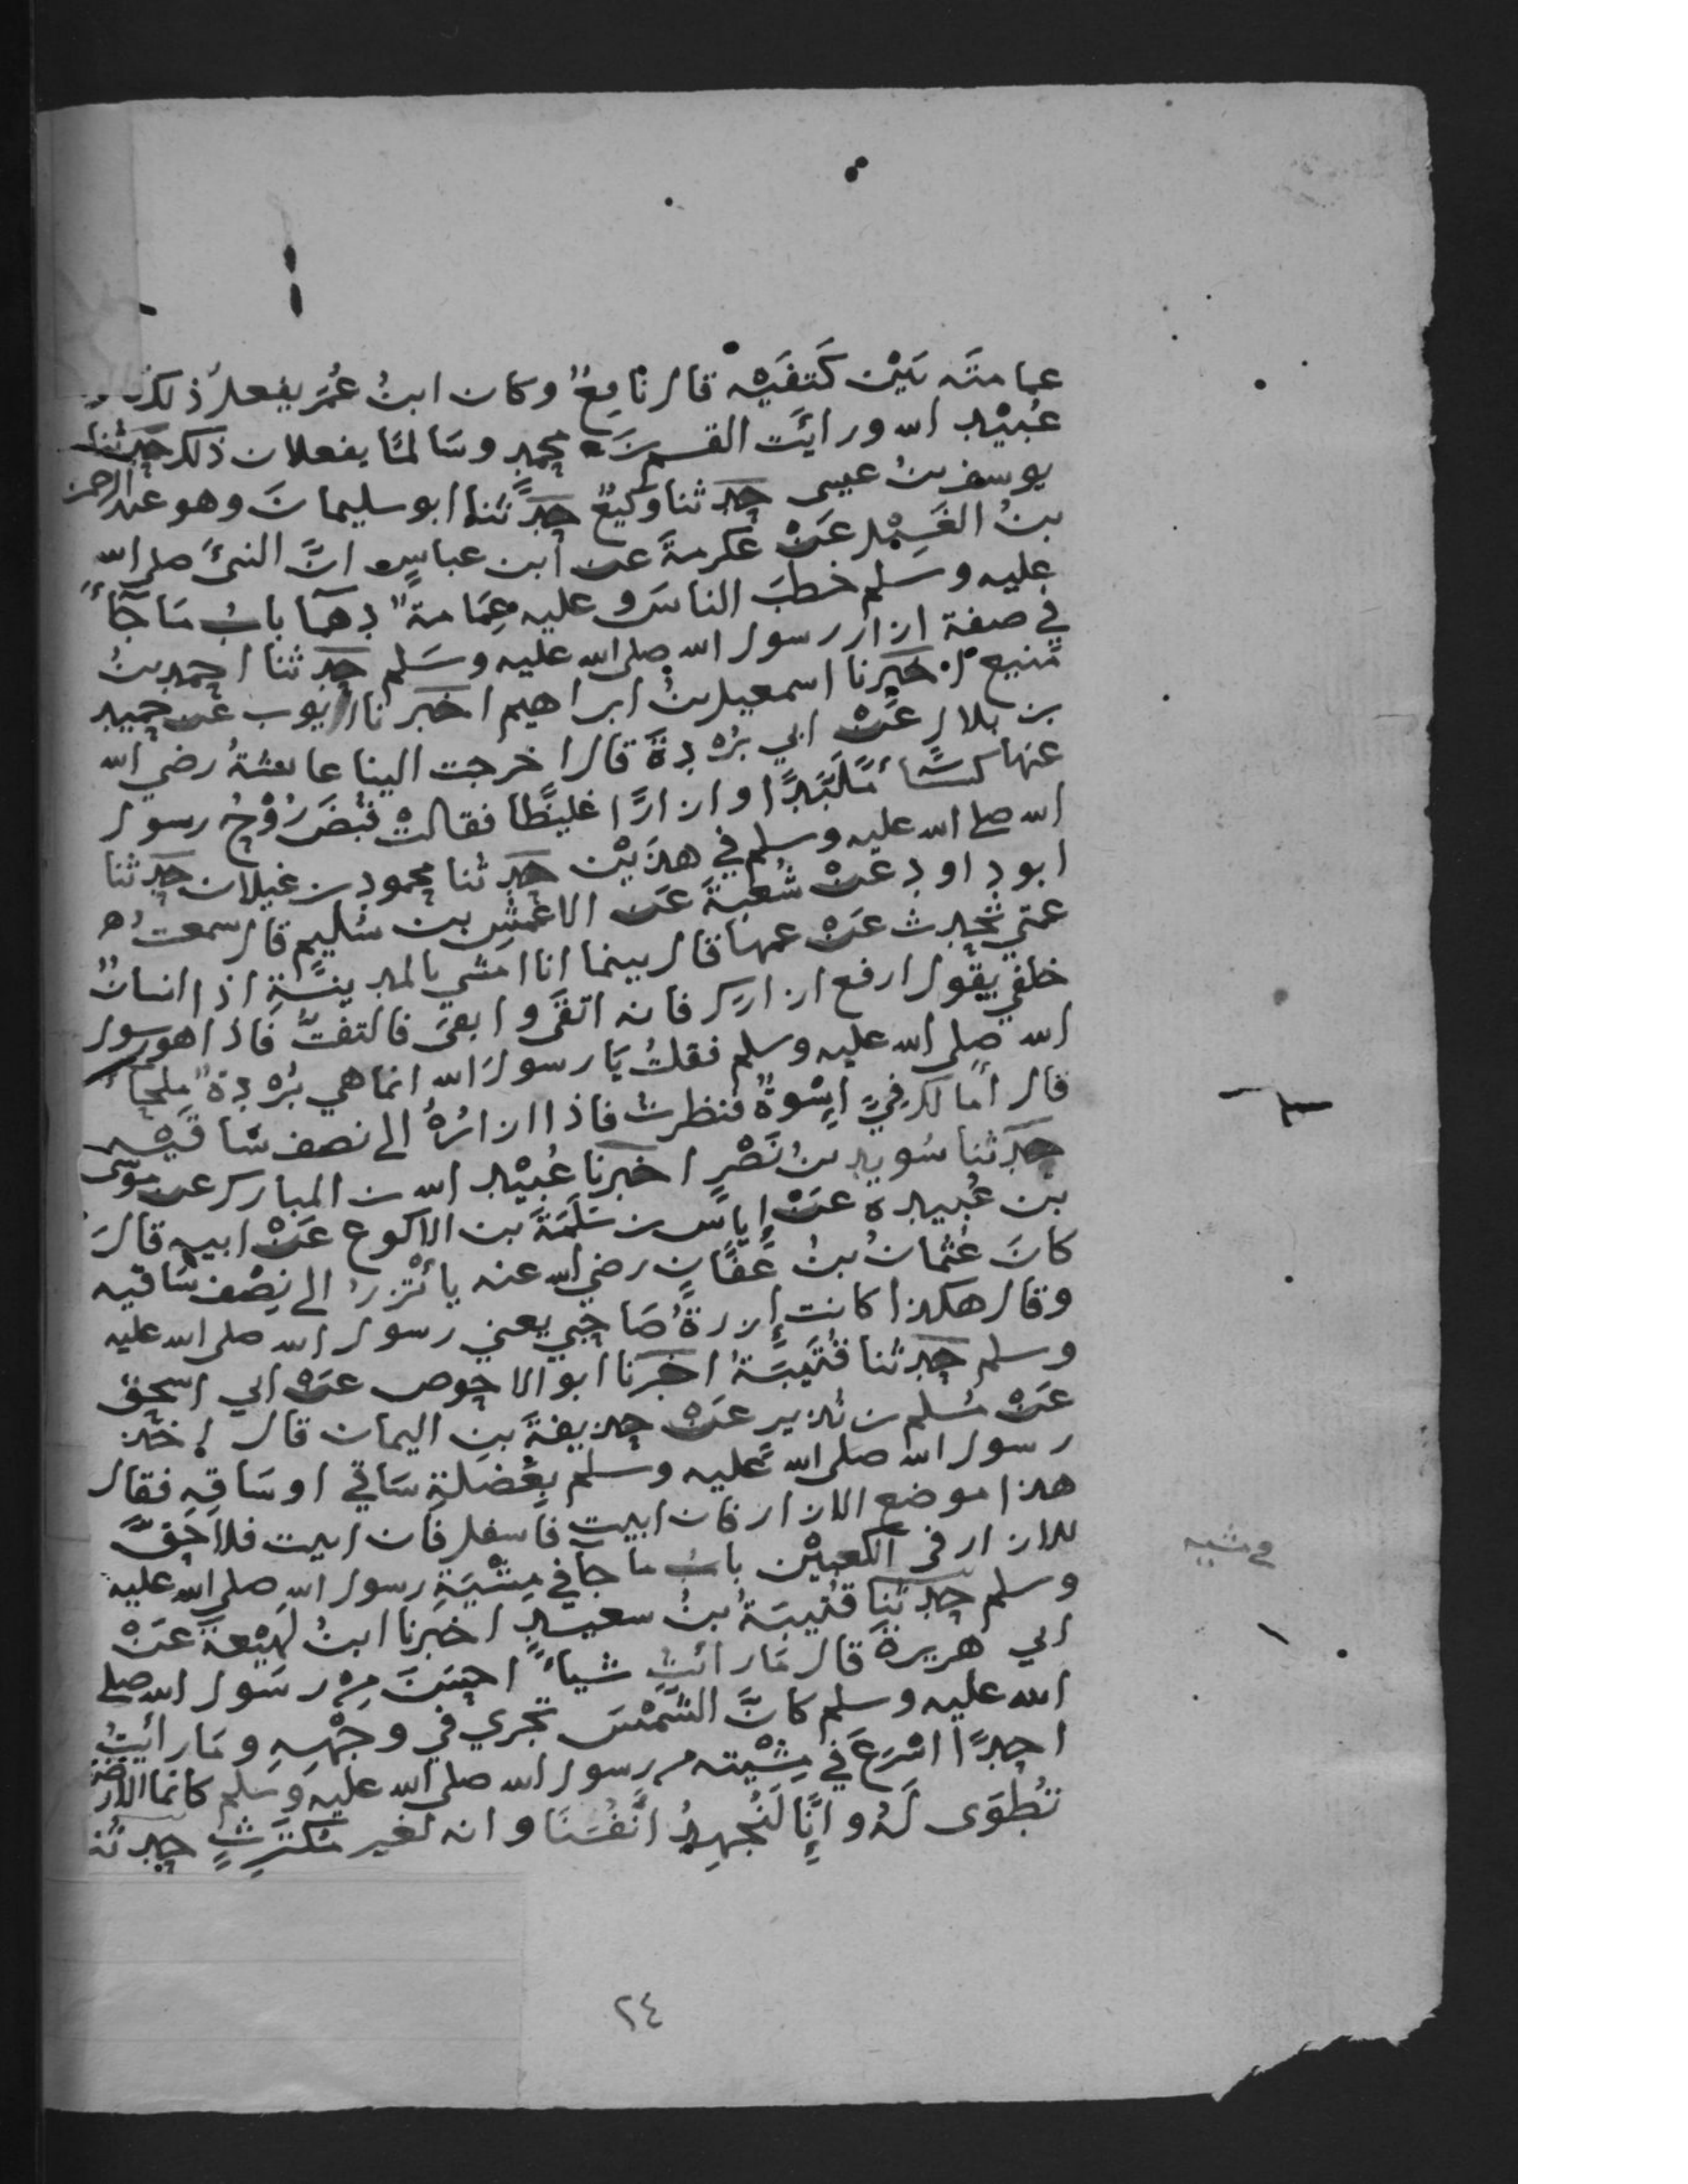 عمامتَه بَيْن كَتفَيْه قال نافعٌ وكان ابنُ عُمَرَ يفعلُ ذلك قال
عُبَيْد الله ورايَت القسم بنَ محمدٍ وسَالمًا يفعلان ذلك حَدثنا
يوسف بنُ عيسى حَدثنا وكيعٌ حَدَّثنا ابو سليمانَ وهو عبد الرحمن
بنُ الغَسِيْل عَنْ عكرمةَ عن ابن عباسٍ انَّ النبيَّ صلى الله
عليه وسَلم خطبَ الناسَ وعليه عِمَامةٌ دهمَا بابُ مَا جَاءَ
في صفة ازار رسول الله صلى الله عليه وسَلم حَدثنا احمد بنُ
مَنيع اخبرنا اسمعيل بنُ ابراهيم اخبرنا ايوب عَن حميد
بن هلال عَنْ ابي بُرْدةَ قال اخرجت الينا عائشةُ رضي الله
عنها كسَاءً مُلَبَّدًا وازارًا غليظًا فقالتْ قُبضَ رُوْحُ رسول
الله صلى الله عليه وسلم في هذَيْن حَدثنا محمود بن غيلان حَدثنا
ابو داود عَنْ شُعبَةَ عَن الاَشْعثِ بن سُليم قال سمعتُ
عمتي تحَدث عَنْ عمها قال بينما انا امشي بالمدينَةِ اذا انسانٌ
خلفي يقول ارفع ازارك فانه اتقَى وابقىَ فالتفتُّ فاذا هو رسول
الله صلى الله عليه وسلم فقلتُ يَا رسولَ الله انما هي بُرْدةٌ ملحَاءُ
قال اما لك فِيَّ اُسْوةٌ فنظرت فاذا ازارُهُ الى نصف سَاقَيْه
حَدثنا سُويد بنُ نَصْرٍ اخبرنا عُبَيْد الله بن المبارك عن موسَى
بْن عُبيدة عَنْ اِياس بن سَلَمَةَ بن الاكوع عَنْ ابيه قالَ
كانَ عُثمانُ بنُ عَفَّانٍ رضي الله عنه يأتْزرُ الى نِصْف سَاقيه
وقال هكذا كانت اِزرةُ صَاحبي يعني رسول الله صلى الله عليه
وسلم حَدثنا قُتَيبَةُ اخبَرنا ابو الاحوص عَنْ ابي اسحق
عَنْ مُسلم بن نُذير عَنْ حذيفةَ بنِ اليمان قال اخذ
رسول الله صلى الله عَليه وسلم بِعُضلةِ سَاقي او سَاقِهِ فقال
هذا موضع الازار فان ابيت فاَسفل فان ابيت فلا حَقَّ
للازار في الكعبَيْن بابُ ما جآ في مِشْيَةِ رسول الله صلى الله عليه
في مشيه
وسلم حَدثنا قُتيبَةُ بنُ سعيدٍ اخبَرنا ابنُ لَهِيْعَةَ عَنْ
ابي هريرة قال مَا رائتُ شياءً احسَنَ مِنْ رسَول الله صلى
الله عليه وسلم كانَّ الشَّمْسَ تجري في وجْهِهِ ومَا رأيتُ
احدًا اسْرَعَ في مِشْيته من رسول الله صلى الله عليه وسلم كانما الارض
تُطْوَى لَهُ وانَّا لَنُجهِدُ انفُسَنَا وانه لغير مُكْتَرِثٍ حدثنا
٢٤